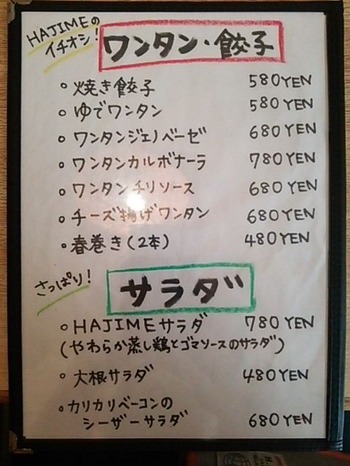 HAJIMEの
イチオシ!
ワンタン・餃子
焼き餃子 580YEN
ゆでワンタン 580YEN
ワンタンジェノベーゼ 680YEN
ワンタンカルボナーラ 780YEN
ワンタンチリソース 680YEN
チーズ揚げワンタン 680YEN
春巻き(2本) 480YEN
さっぱり!
サラダ
HAJIMEサラダ 780YEN
(やわらか蒸し鶏とゴマソースのサラダ)
大根サラダ 480YEN
カリカリベーコンの
シーザーサラダ 680YEN